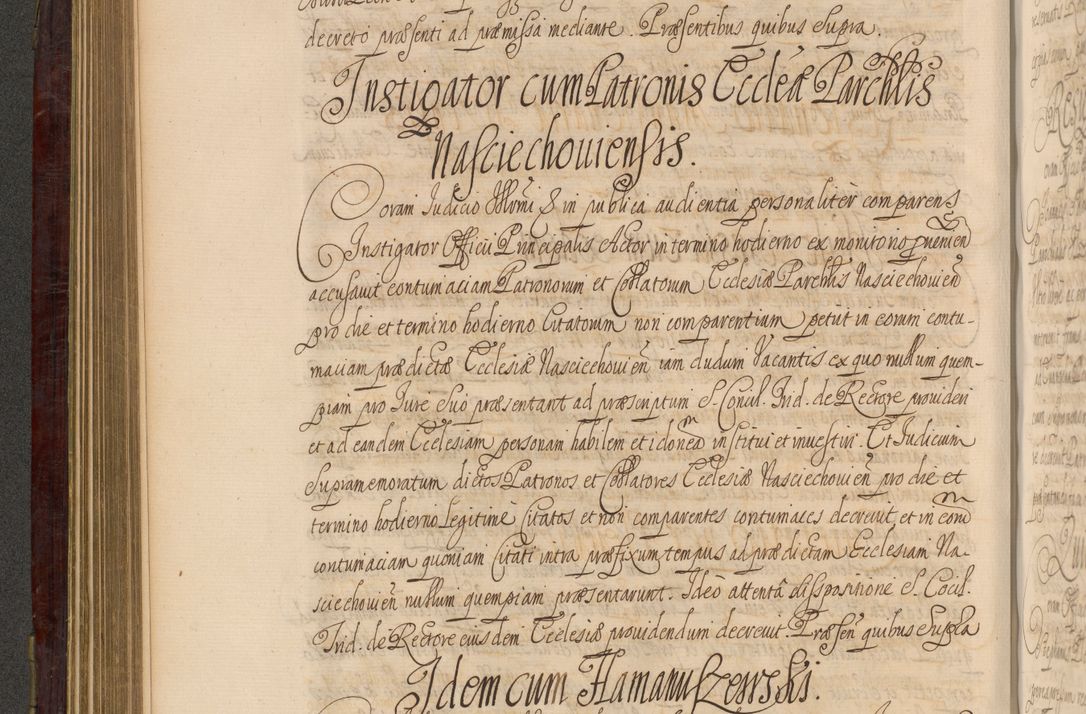 decreto præsenti ad præmissa mediante. Præsentibus quibus Supra.
Instigator cum Patronis Eccleæ Parchlis
Nasciechouiensis.
Coram Judicio Illrmi & in publica audientia personaliter comparens
Instigator Officii Principalis Actor in termino hodierno ex monitorio puenien
accusavit contumaciam Patronorum et Collatorum Ecclesiæ Parchlis Nasciechouień
pro die et termino hodierno Citatorum non comparentium petut in eorum contu-
maciam prædictæ Ecclesiæ Nasciechouień iam dudum Vacantis ex quo nullum quem-
piam pro Jure Suo præsentant ad præscriptum S. Concil. Trid. de Rectore provideri
et ad eandem Ecclesiam personam habilem et idonea institui et investiri. Et Judicium
Supramemoratum dictos Patronos et Collatores Ecclesiæ Nasciechouień pro die et
termino hodierno Legitime Citatos et non comparentes contumaces decrevit, et in eoru
contumaciam quoniam Citati intra præfixum tempus ad prædictam Ecclesiam Na-
sciechouień nullum quempiam præsentarunt. Ideò attentâ dispositione S. Cocil.
Trid. de Rectore eiusdem Ecclesiæ providendum decrevit. Præsen quibus Supra
Idem cum Hamanuszewski.